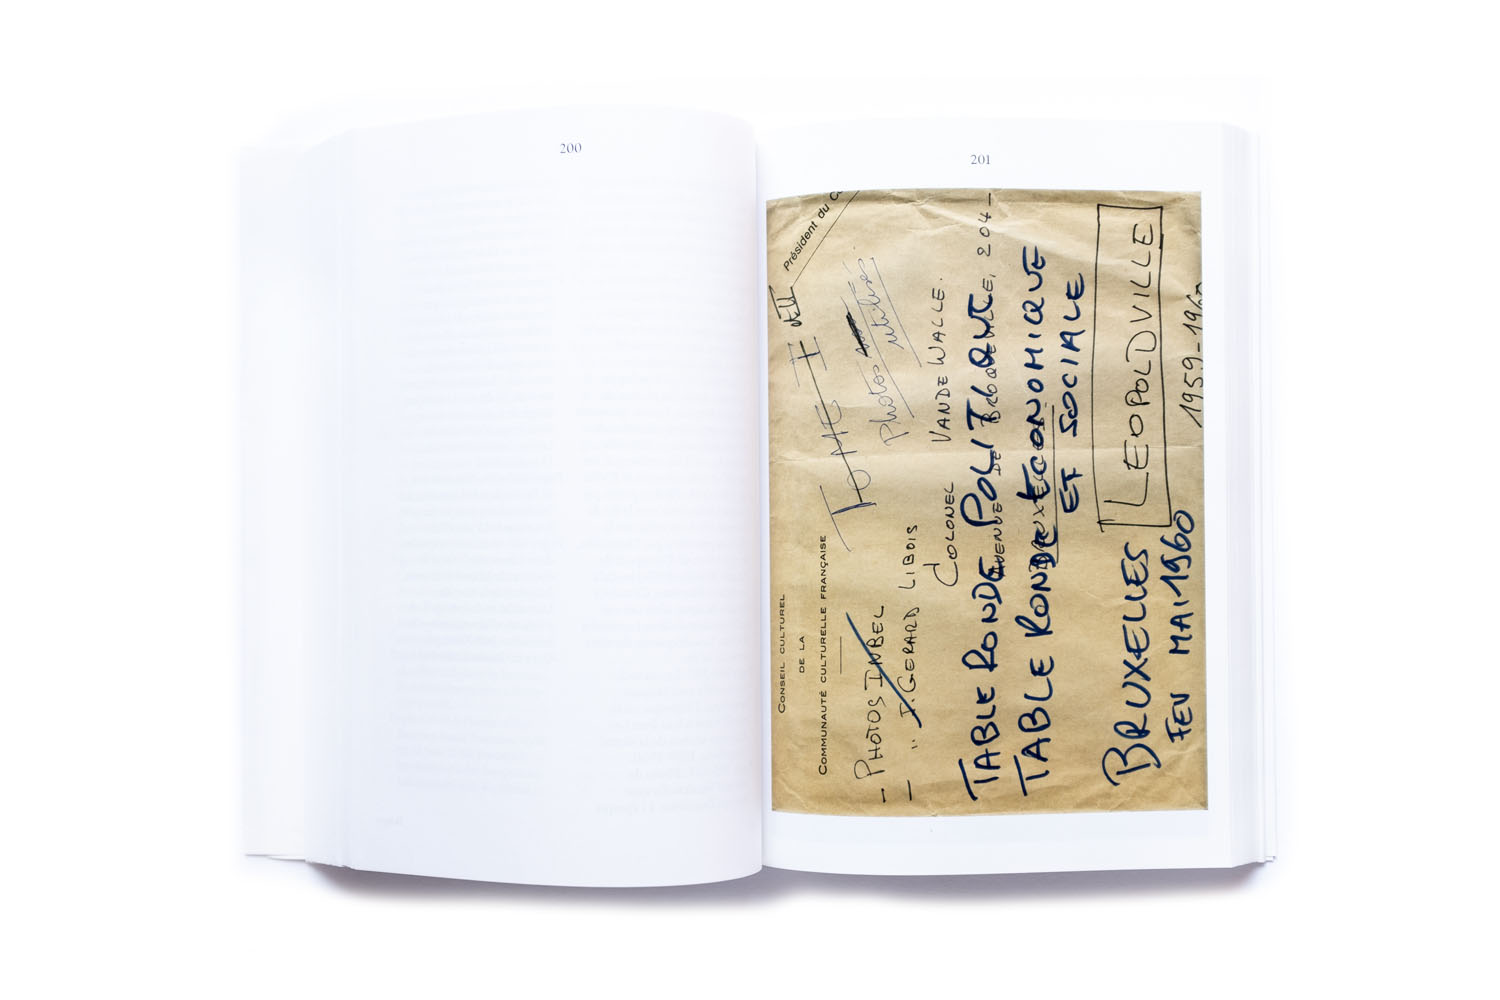 200
201
Président du
CONSEIL CULTUREL
DE LA
COMMUNAUTÉ CULTURELLE FRANÇAISE
TOME I
Photos
utilisées
- PHOTOS INBEL
- " J. GERARD LIBOIS
COLONEL VANDEWALLE.
AVENUE DE BROQUEVILLE, 204-
TABLE RONDE POLITIQUE
TABLE RONDE ECONOMIQUE
ET SOCIALE
BRUXELLES LEOPOLDVILLE
FEV MAI 1960 1959-1960